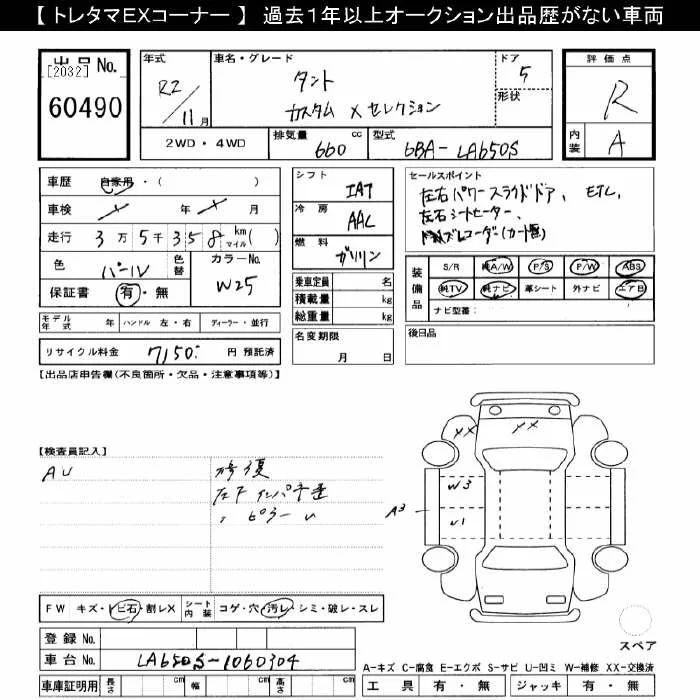 【トレタマEXコーナー】 過去1年以上オークション出品歴がない車両
出品 No.
[2032]
60490
年式
R2/11月
車名・グレード
タント
カスタム X セレクション
ドア
5
形状
評価点
R
内装
A
2WD・4WD
排気量 660 cc
型式 6BA-LA650S
車歴 自家用・( )
車検 年 月
走行 3万5千358 km マイル ( )
色 パール 色替
カラーNo. W25
保証書 有・無
シフト IAT
冷房 AAC
燃料 ガソリン
乗車定員 名
積載量 kg
総重量 kg
セールスポイント
左右パワースライドドア、ETC、
左右シートヒーター、
装備品
S/R 純A/W P/S P/W ABS
純TV 純ナビ 革シート 外ナビ エアB
ナビ型番:
モデル年式 年 ハンドル 左・右 ディーラー・並行
名変期限
月 日
後日品
リサイクル料金 7150- 円 預託済
【出品店申告欄(不良箇所・欠品・注意事項等)】
【検査員記入】
AU
修復
左下インパネ歪
〃 ピラー U
XX XX
W3
U1
A3
FW キズ・トビ石・割レX
シート内装 コゲ・穴・汚レ・シミ・破レ・スレ
登録 No.
車台 No. LA650S-1060304
車庫証明用 長さ cm 幅 cm 高さ cm
スペア
A-キズ C-腐食 E-エクボ S-サビ U-凹ミ W-補修 XX-交換済
工具 有・無 ジャッキ 有・無